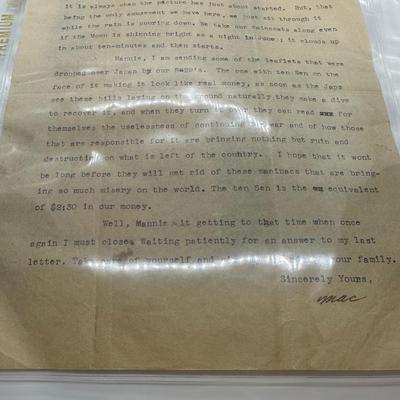 it is always when the picture has just about started. But, that
being the only amusement we have here, we just sit through it
while the rain is pouring down. We take our raincoats along even
if the Moon is shining bright as a night in June; it clouds up
in about ten-minutes and then starts.
Mannie, I am sending some of the leaflets that were
dropped over Japan by our B29's. The one with ten Sen on the
face of it making it look like real money, as soon as the Japs
see these bills laying on the ground naturally they make a dive
to recover it, and when they turn it over they can read xxx for
themselves the uselessness of continuing the war and of how those
that are responsible for it are bringing nothing but ruin and
destruction on what is left of the country. I hope that it wont
be long before they will get rid of these maninacs that are bring-
ing so much misery on the world. The ten Sen is the equivalent
of $2:30 in our money.
Well, Mannie it getting to that time when once
again I must close. Waiting patiently for an answer to my last
letter. Take care of yourself and your family.
Sincerely Yours,
Mac